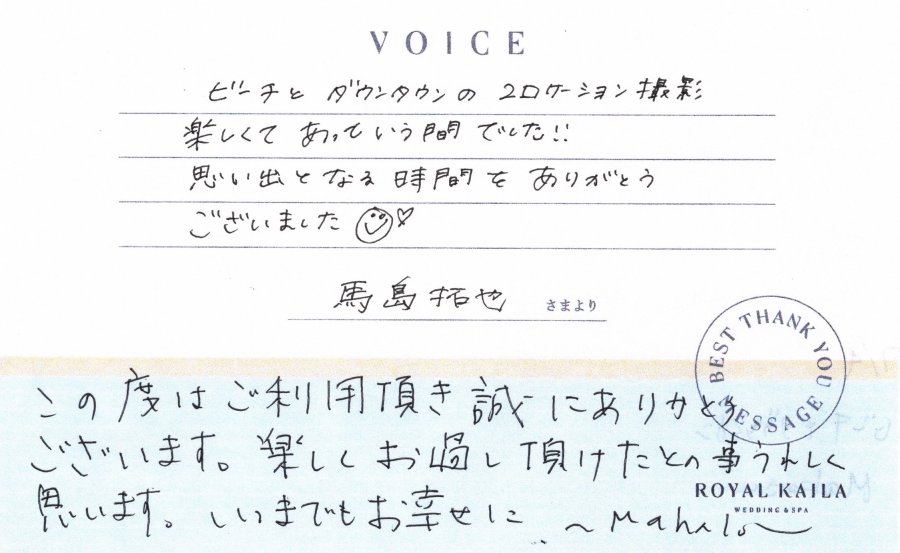 VOICE
ビーチと ダウンタウンの 2ロケーション撮影
楽しくて あっという間 でした!!
思い出となる時間を ありがとう
ございました
馬島拓也 さまより
BEST THANK YOU MESSAGE
この度はご利用頂き誠にありがとう
ございます。楽しくお過し頂けたとの事うれしく
思います。いつまでもお幸せに ～Mahalo～
ROYAL KAILA
WEDDING & SPA